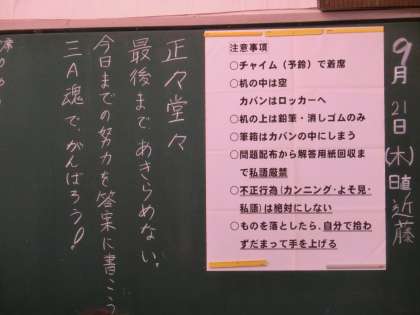 9月21日(木)日直 近藤
注意事項
○チャイム(予鈴)で着席
○机の中は空
カバンはロッカーへ
○机の上は鉛筆・消しゴムのみ
○筆箱はカバンの中にしまう
○問題配布から解答用紙回収ま
で私語厳禁
○不正行為(カンニング・よそ見・
私語)は絶対にしない
○ものを落としたら、自分で拾わ
ずだまって手を上げる
正々堂々
最後まであきらめない。
今日までの努力を答案に書こう
三A魂で、がんばろう!